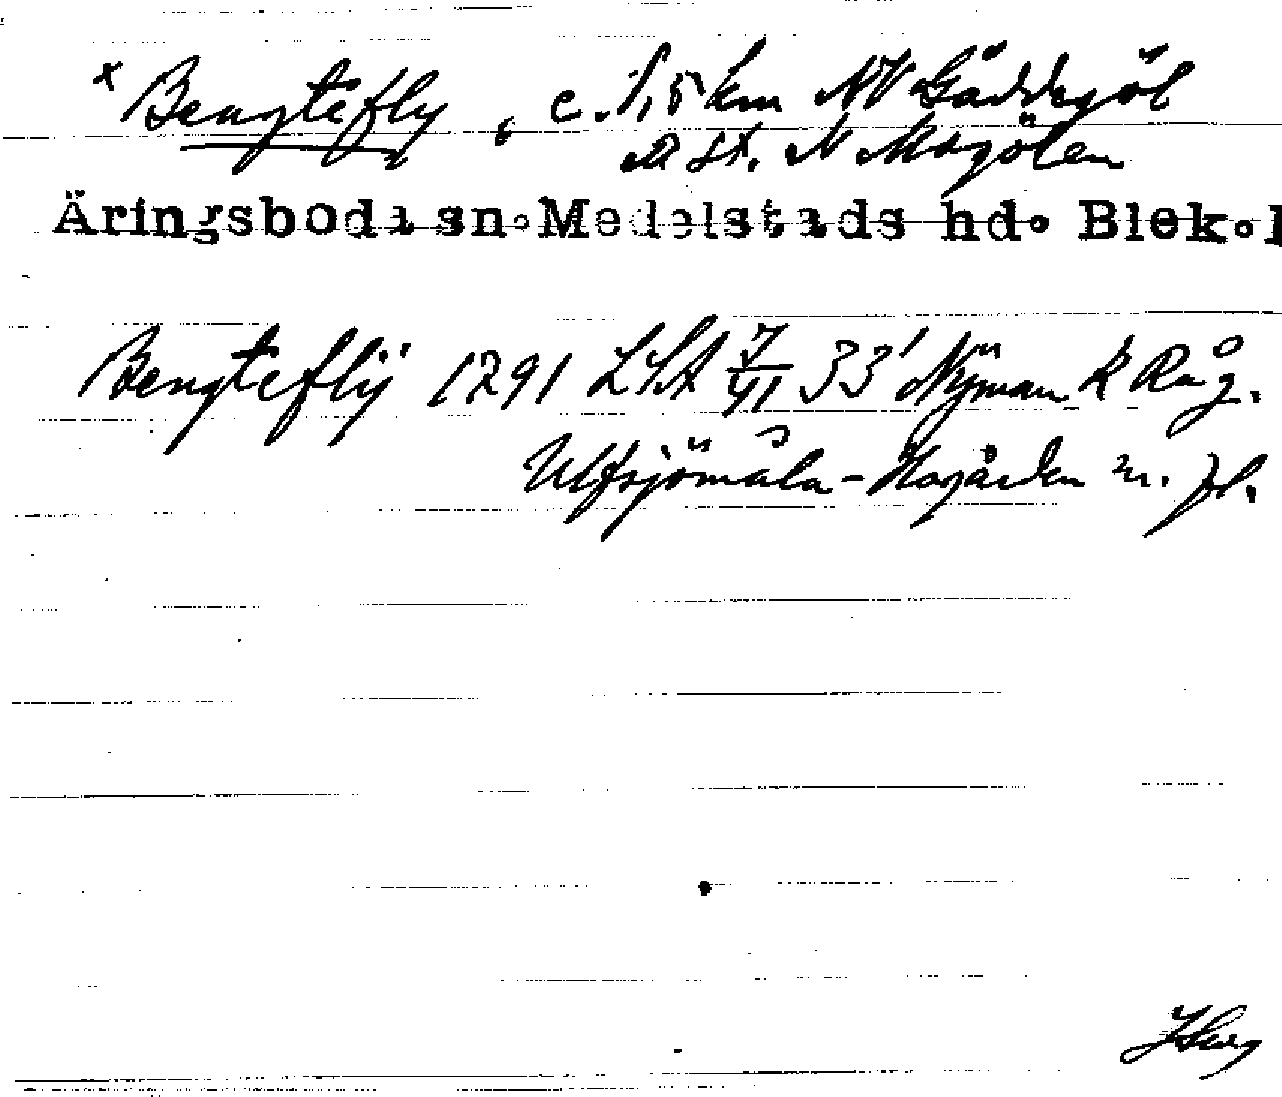 x Bengtefly, c. 1,5 km NV Gäddegöl
st. N Magölen
Äringsboda sn. Medelstads hd. Blek.l
Bengteflÿ 1291 LSA 7/VI 33 Nyman R Råg.
Ulfsjömåla-Hagården m. fl.